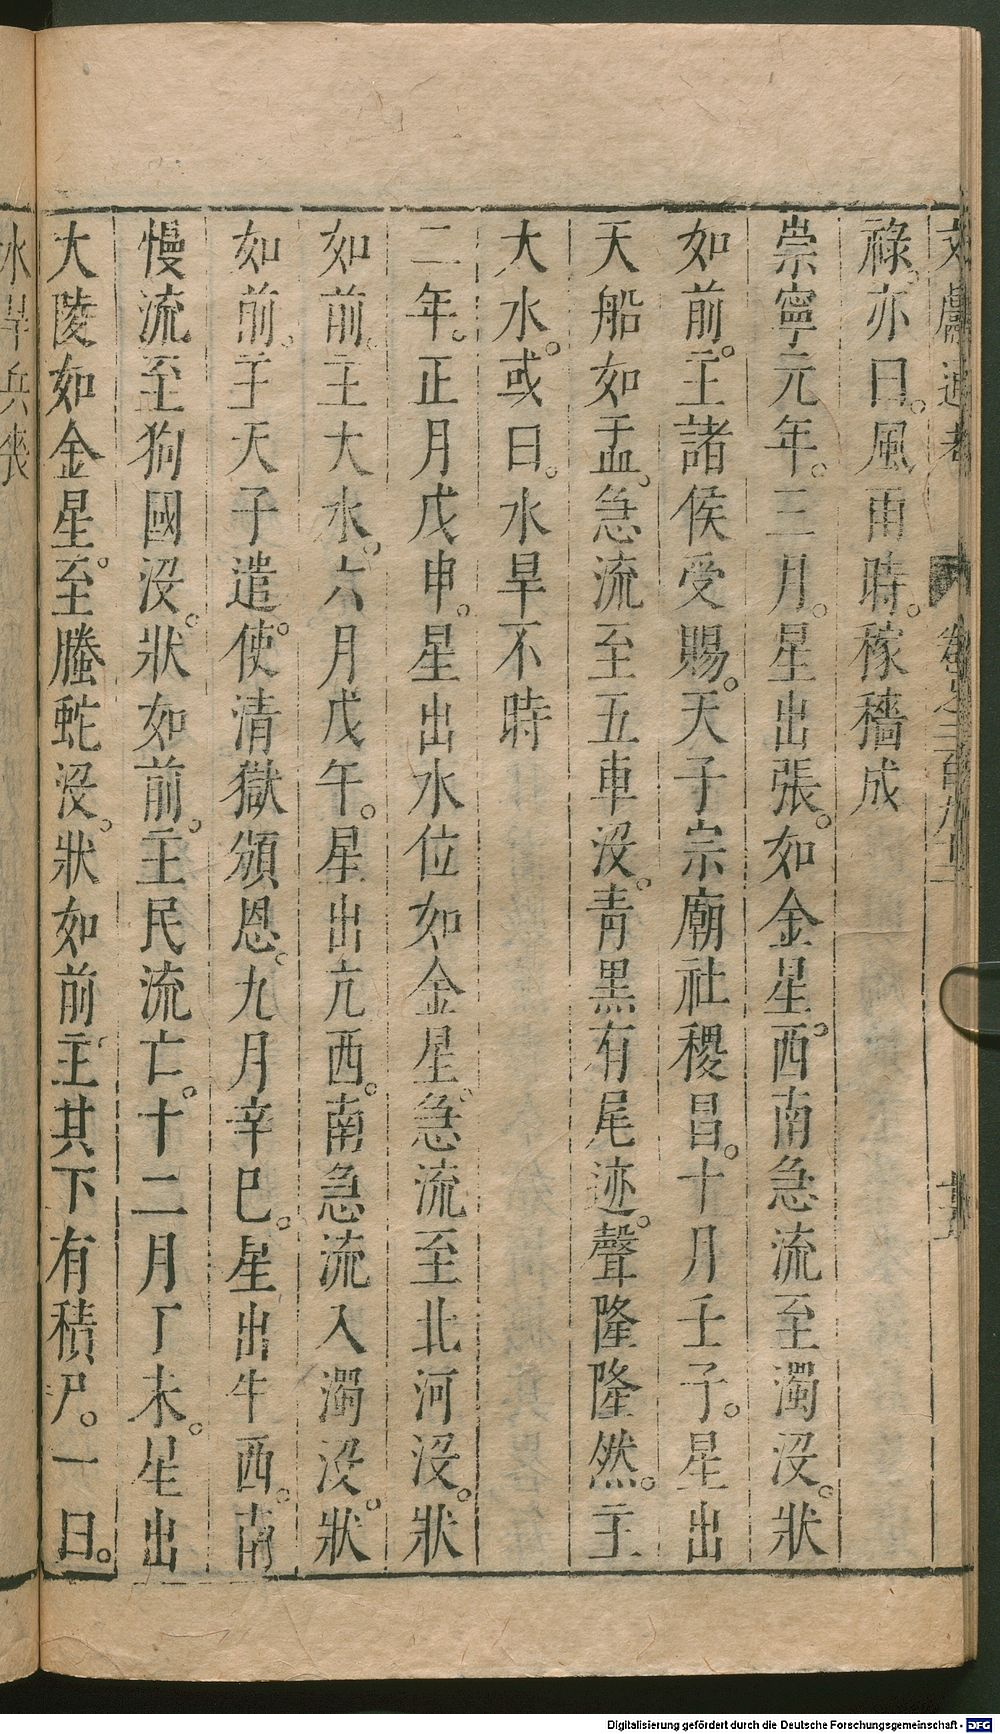 文獻通考 卷之二百九十一
祿。亦曰。風雨時。稼穡成
崇寧元年。三月。星出張。如金星。西南急流至濁沒。狀
如前。主諸侯受賜。天子宗廟社稷昌。十月壬子。星出
天船如盂。急流至五車沒。青黑有尾迹。聲隆隆然。主
大水。或曰。水旱不時
二年。正月戊申。星出水位如金星。急流至北河沒。狀
如前。主大水。六月戊午。星出亢西。南急流入濁沒。狀
如前。主天子遣使。清獄頒恩。九月辛巳。星出牛西。南
慢流至狗國沒。狀如前。主民流亡。十二月丁未。星出
大陵如金星。至螣蛇沒。狀如前主其下有積尸。一曰。
水旱兵喪
Digitalisierung gefördert durch die Deutsche Forschungsgemeinschaft - DFG